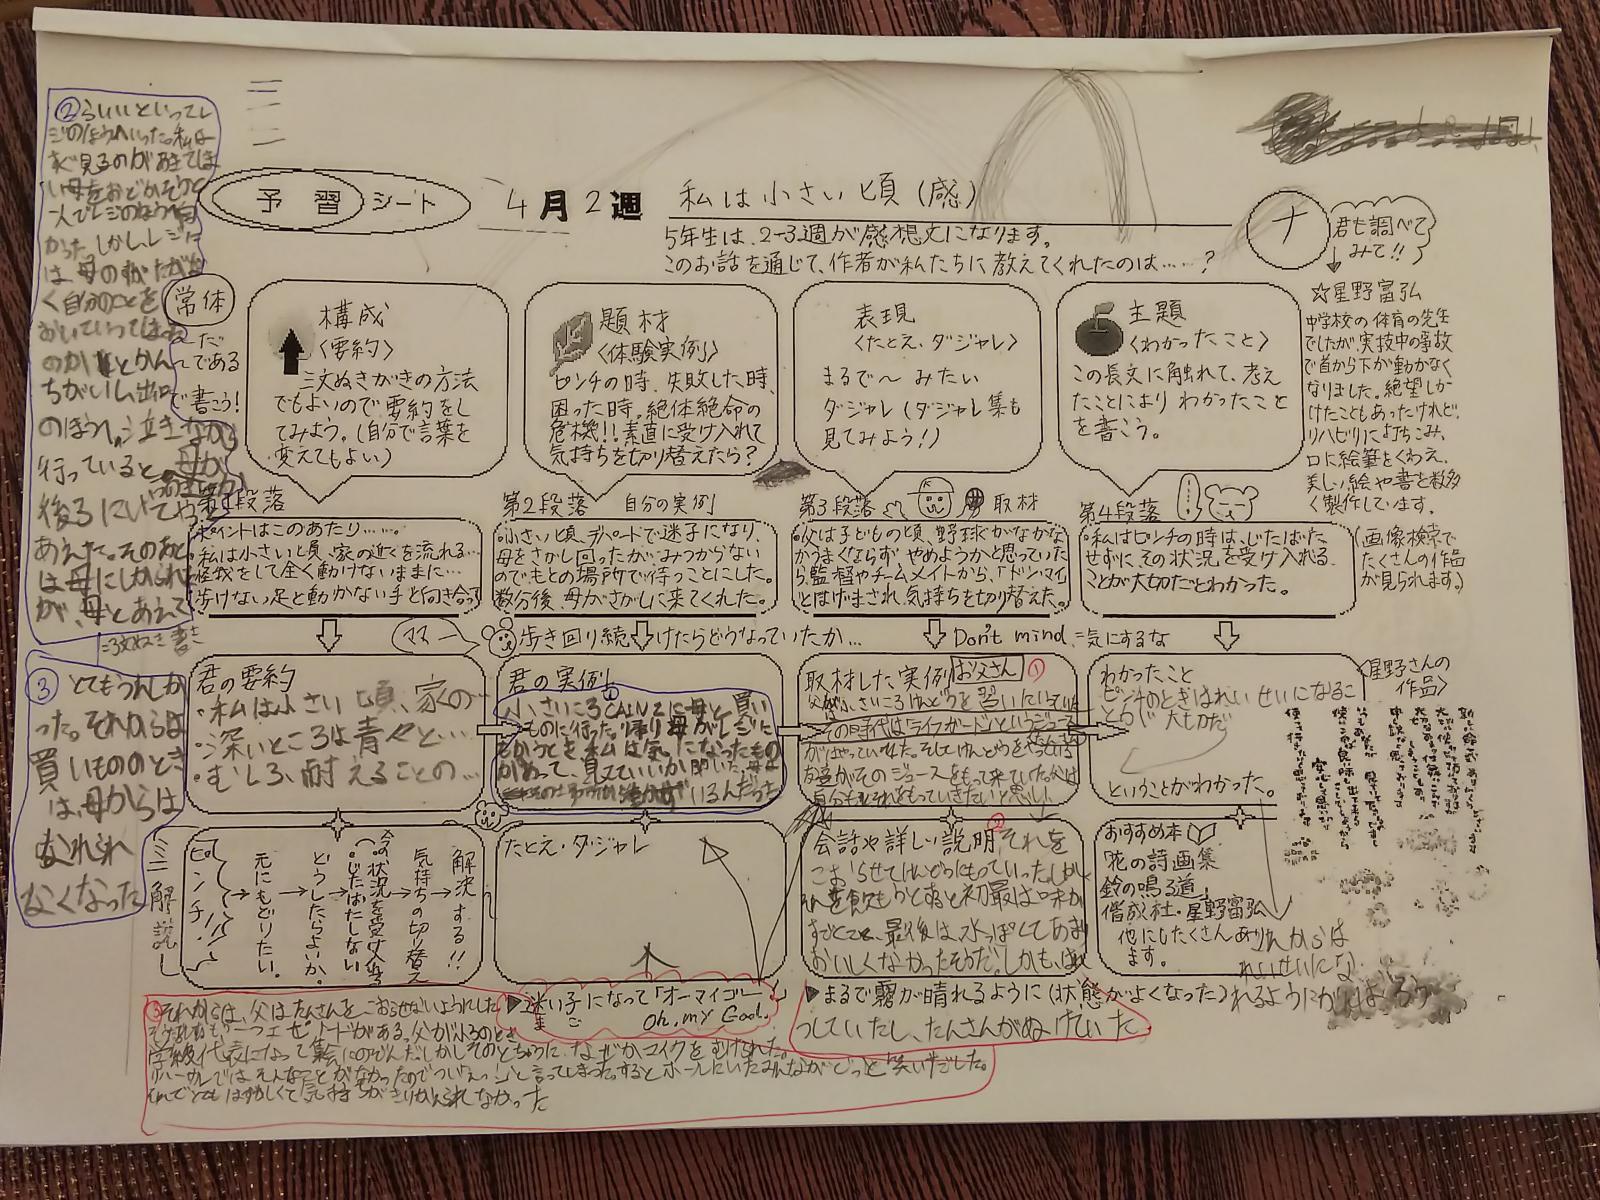 予習シート
4月2週
私は小さい頃(感)
5年生は、2-3週が感想文になります。
このお話を通じて、作者が私たちに教えてくれたのは……?
ナ
君も調べて
みて!!
☆星野富弘
中学校の体育の先生
でしたが、実技中の事故
で首から下が動かなく
なりました。絶望しか
けたこともあったけれど、
リハビリに打ちこみ、
口に絵筆をくわえ、
美しい絵や書を数多
く製作しています。
(画像検索で
たくさんの作品
が見られます。)
常体
〜だ
〜である
で書こう!
構成
<要約>
三文ぬきがきの方法
でもよいので要約をし
てみよう。(自分で言葉を
変えてもよい)
題材
<体験実例>
ピンチの時、失敗した時、
困った時。絶体絶命の
危機!!素直に受け入れて
気持ちを切り替えたら?
表現
<たとえ・ダジャレ>
まるで〜みたい
ダジャレ(ダジャレ集も
見てみよう!)
主題
<わかったこと>
この長文に触れて、考え
たことによりわかったこと
を書こう。
第1段落
ポイントはこのあたり……。
私は小さい頃、家の近くを流れる…
怪我をして全く動けないままに…
歩けない足と動かない手と向き合って
第2段落 自分の実例
小さい頃、デパートで迷子になり、
母をさがし回ったが、みつからない
のでもとの場所で待つことにした。
数分後、母がさがしに来てくれた。
第3段落 取材
父は子どもの頃、野球がなかなか
うまくならず、やめようかと思っていた
ら、監督やチームメイトから、「ドン・マイ」
とはげまされ、気持ちを切り替えた。
第4段落
私はピンチの時は、じたばた
せずに、その状況を受け入れる
ことが大切だとわかった。
三文ぬき書き
ママー
歩き回り続けたらどうなっていたか…
Don't mind = 気にするな
君の要約
・私は小さい頃、家の…
・深いところは青々と…
・むしろ、耐えることの…
君の実例
①
小さいころCAINZに母と買い
ものに行った。帰り母がレジに
むかうとき私は気になったもの
があって、見ていいか聞いた。母は
いるんだった
②らいいといってレ
ジのほうへいった。私は
すぐ見るのがあきてしま
い母をおどかそうと
一人でレジのほうへ向
かった。しかし、レジに
は、母のすがたがな
く自分のことを
おいていってしまった
のかとかん
ちがいし、出口
のほうへ泣きながら
行っていると、母が
後ろにいてやっと
あえた。そのあと
は母にしかられた
が、母とあえて
③とてもうれしか
った。それからは
買いもののとき
は、母からは
なれられ
なくなった
取材した実例 お父さん ①
父が小さいころけんどうを習いにいっていた
その時代は「ライフガード」というジュース
がはやっていた。そしてけんどうをやっている
友達がそのジュースをもって来ていた。父は
自分もそれをもっていきたいと思い、
わかったこと
ピンチのときはれいせいになるこ
とが大切だ
ということがわかった。
<星野さんの
作品>
ミニ解説
ピンチ!!
→元にもどりたい。
→どうしたらよいか。
→じたばたしない
今の状況を受け入れる
→気持ちの切り替え
→解決する!!
たとえ・ダジャレ
▶迷い子になって「オーマイゴー
まご Oh, my God.
会話や詳しい説明 ②それを
こおらせてけんどうにもっていった。しかし
それを飲もうとすると初最は味が
すごくこく、最後は、水っぽくてあまり
おいしくなかったそうだ。しかも、は
▶まるで霧が晴れるように(状態がよくなった)
っしていたし、たんさんがぬけていた
おすすめ本
「花の詩画集
鈴の鳴る道」
偕成社・星野富弘
他にもたくさんあり
ます。
これからは
れいせいにな
れるようにがんばろう
③それからは、父はたんさんをこおらせないようにした
それからもう一つエピソードがある。父が小6のとき
学級代表になって集会にのぞんだ。しかしそのとちゅうに、なぜかマイクをむけられた。
リハーサルではそんなことがなかったのでついえっ!?と言ってしまった。するとホールにいたみんながどっと笑いだした。
それでとてもはずかしくて気持ちがきりかえられなかった